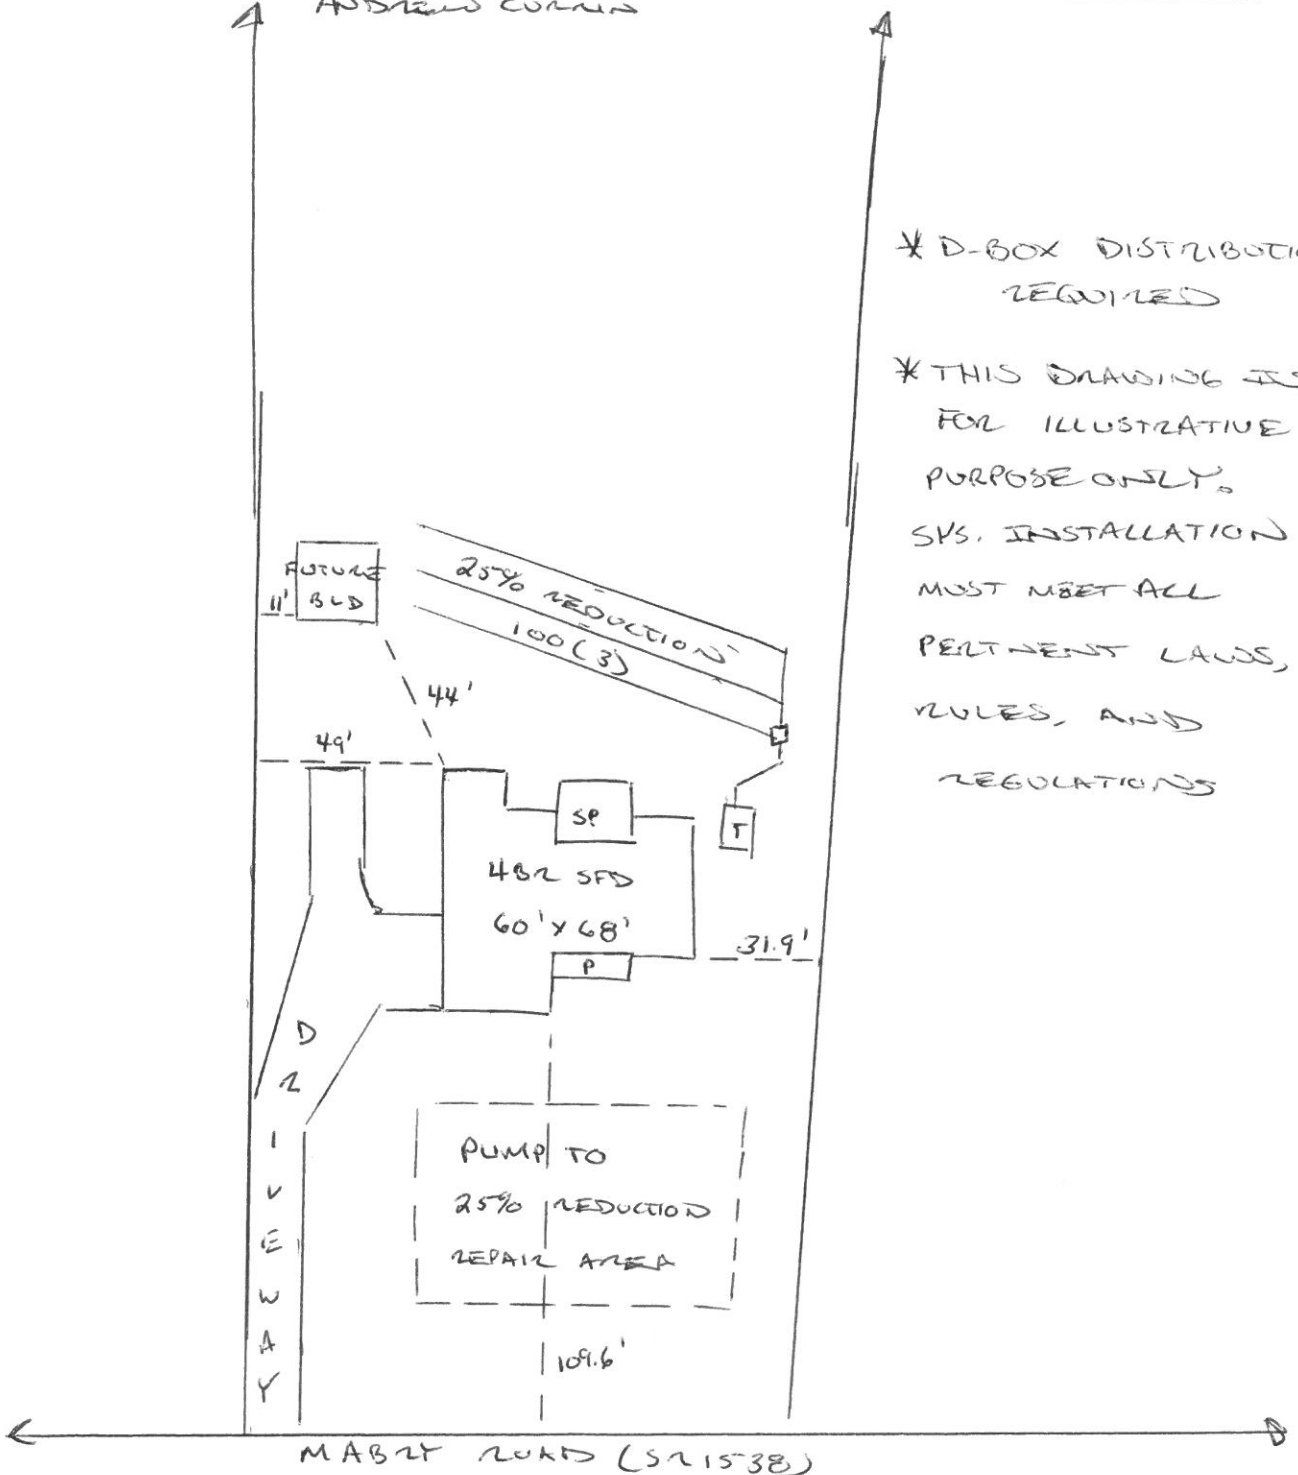 ANDREW CURRIN
* D-BOX DISTRIBUTI
REQUIRED
* THIS DRAWING IS
FOR ILLUSTRATIVE
PURPOSE ONLY.
SYS. INSTALLATION
MUST MEET ALL
PERTNENT LAWS,
RULES, AND
REGULATIONS
FUTURE
BLD
11'
25% REDUCTION
100 (3)
44'
49'
SP
T
4BR SFD
60' X 68'
31.9'
P
DRIVEWAY
PUMP TO
25% REDUCTION
REPAIR AREA
109.6'
MABRY ROAD (SR1538)